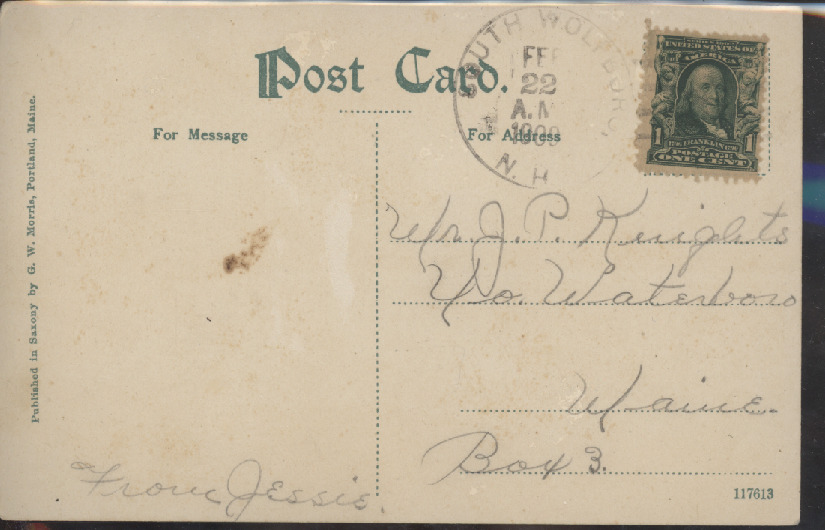 Post Card.
For Message
For Address
SOUTH WOLFBORO,
FEB
22
A.M
1909
N.H.
UNITED STATES OF
AMERICA
1
1
FRANKLIN
POSTAGE
ONE CENT
Published in Saxony by G. W. Morris, Portland, Maine.
Mr. J. P. Knights
So. Waterboro
Maine.
Box 3.
From Jessie.
117613